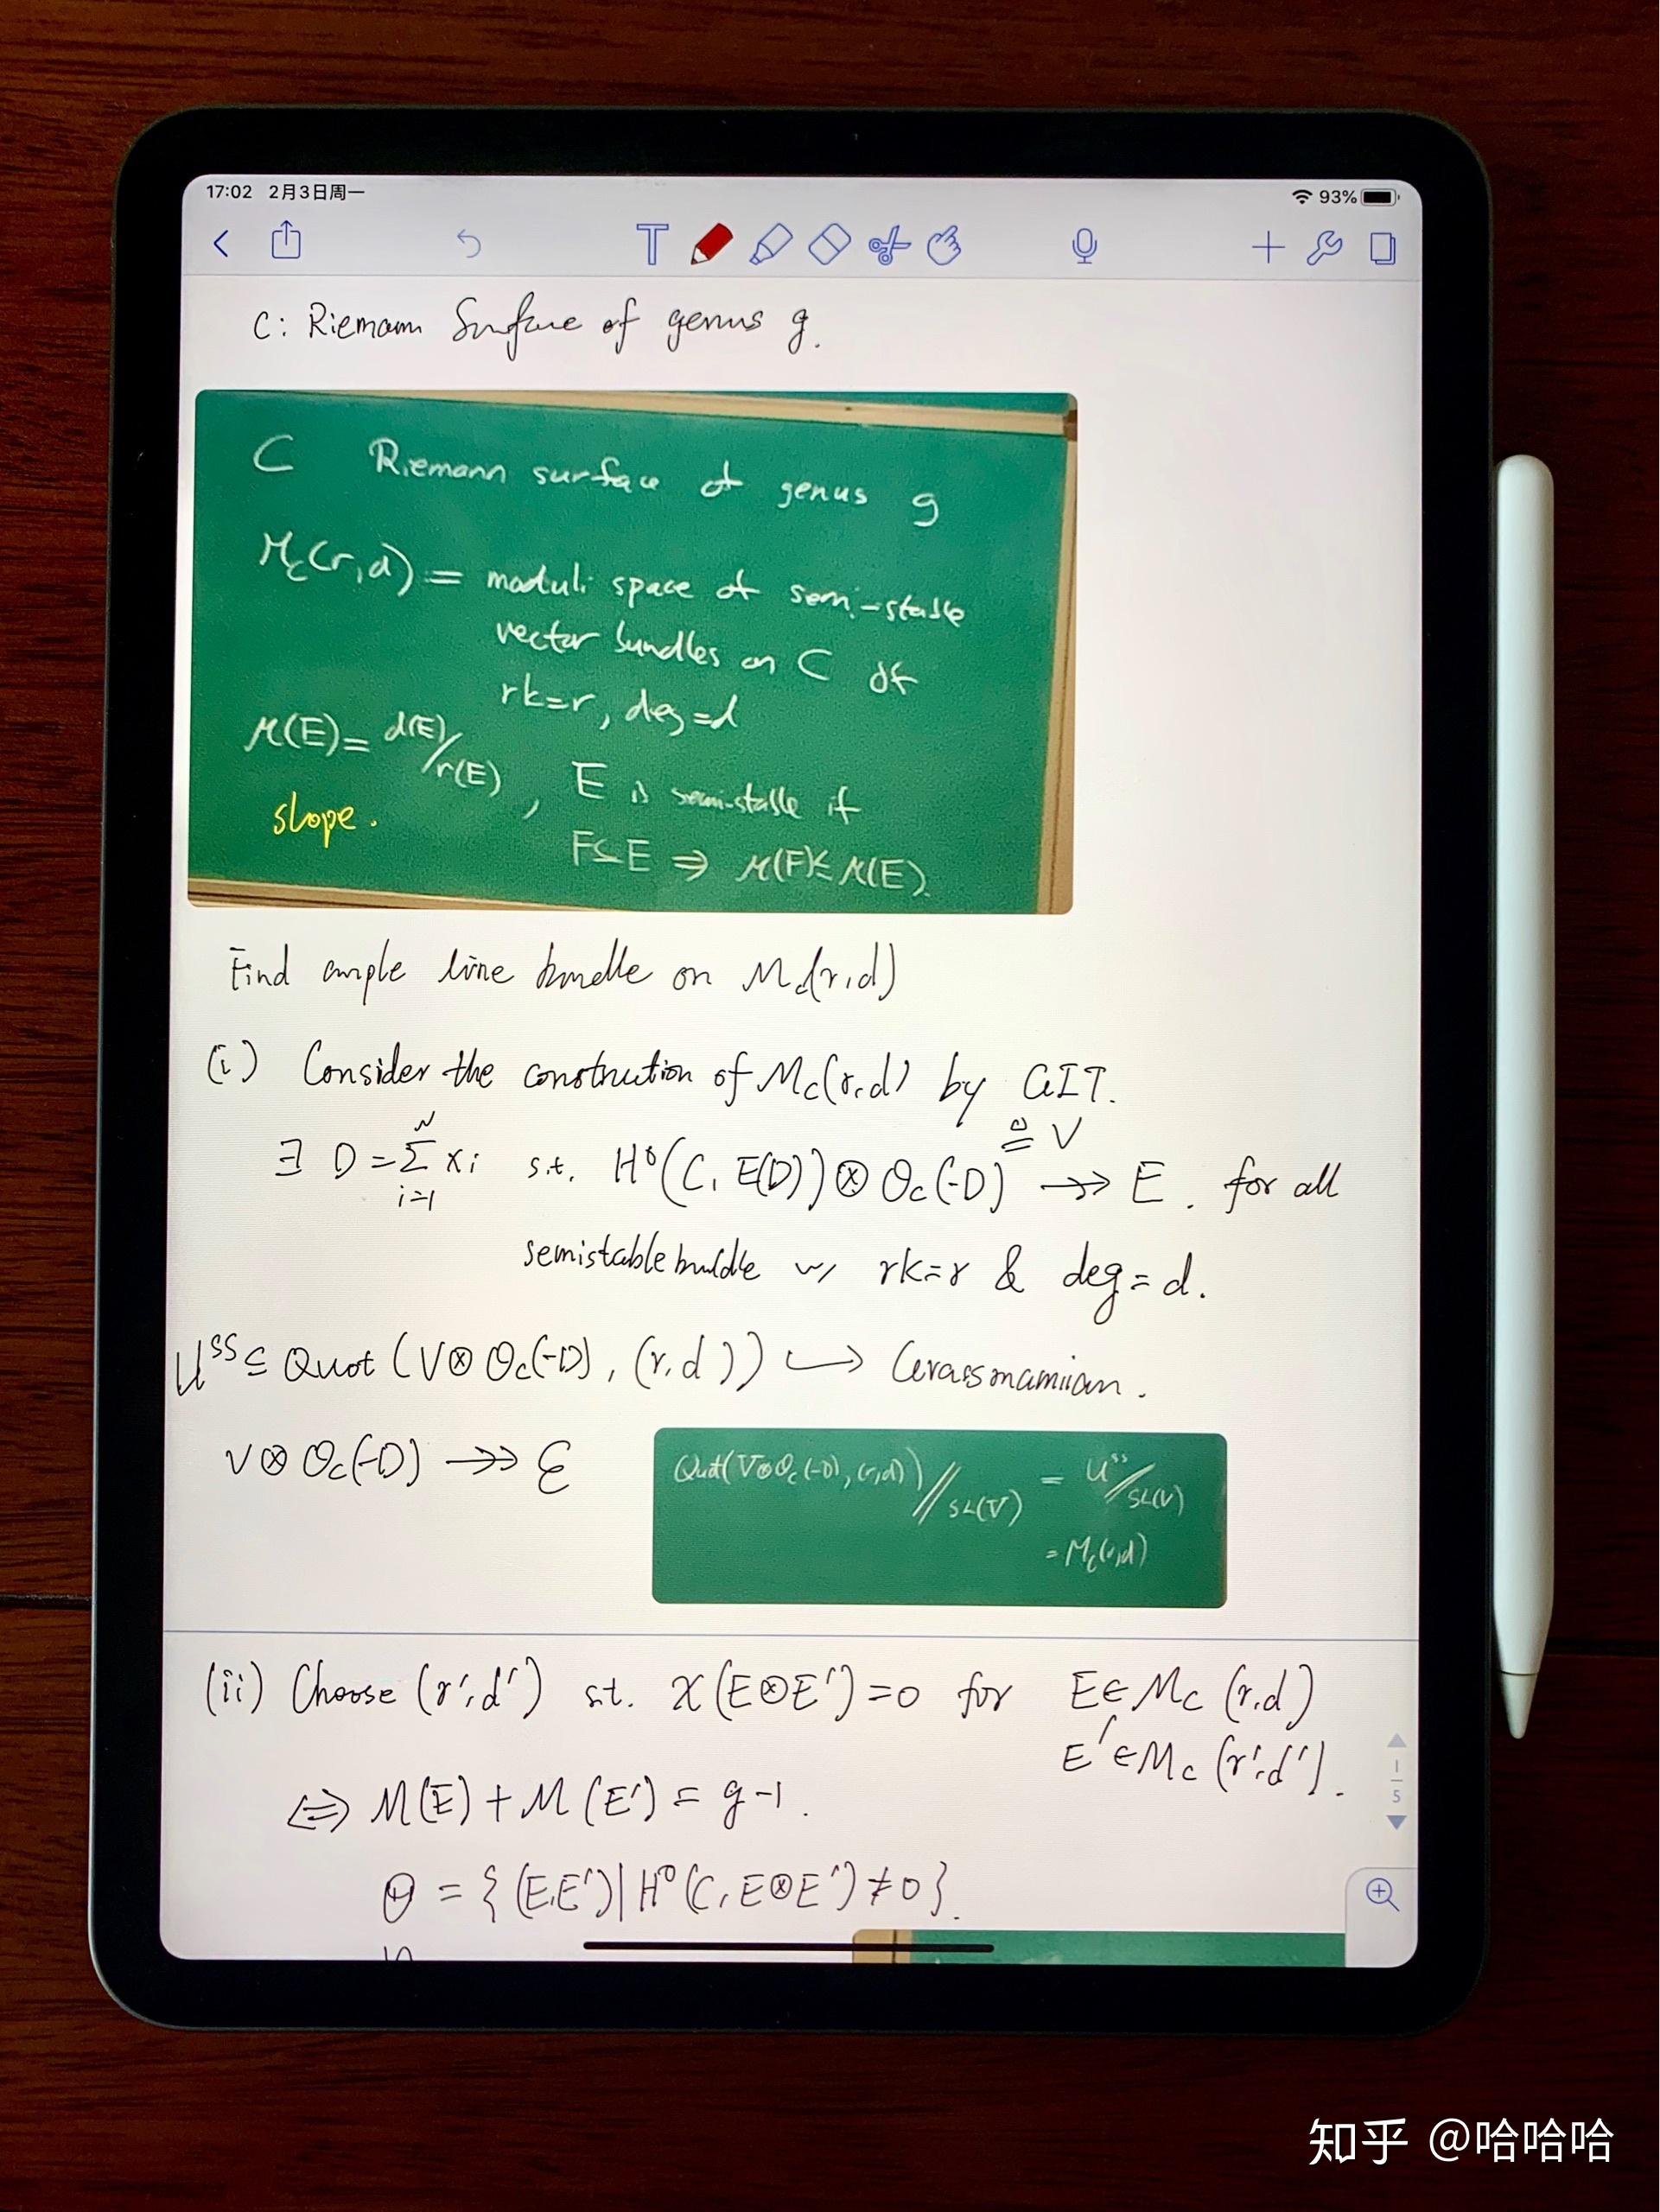 17:02 2月3日周一
93%
C: Riemann Surface of genus g.
C Riemann surface of genus g
M_C(r,d) = moduli space of semi-stable
vector bundles on C of
rk=r, deg=d
μ(E)= d(E)/r(E), E is semi-stable if
slope.
F⊆E ⇒ μ(F)≤ μ(E).
Find ample line bundle on M_C(r,d)
(i) Consider the construction of M_C(r,d) by GIT.
∃ D = Σ_{i=1}^{N} x_i s.t. H⁰(C, E(D))⊗O_C(-D) ↠ E. for all
≅ V
semistable bundle w/ rk=r & deg=d.
U^{SS} ⊆ Quot (V⊗O_C(-D), (r,d)) ↪ Grassmannian.
V⊗O_C(-D) ↠ ℰ
Quot(V⊗O_C(-D), (r,d))//SL(V) = U^{ss}//SL(V)
= M_C(r,d)
(ii) Choose (r',d') s.t. χ(E⊗E')=0 for E∈M_C(r,d)
E'∈M_C(r',d').
⇔ μ(E)+μ(E') = g-1.
Θ = {(E,E')| H⁰(C, E⊗E')≠0}.
1
5
知乎 @哈哈哈